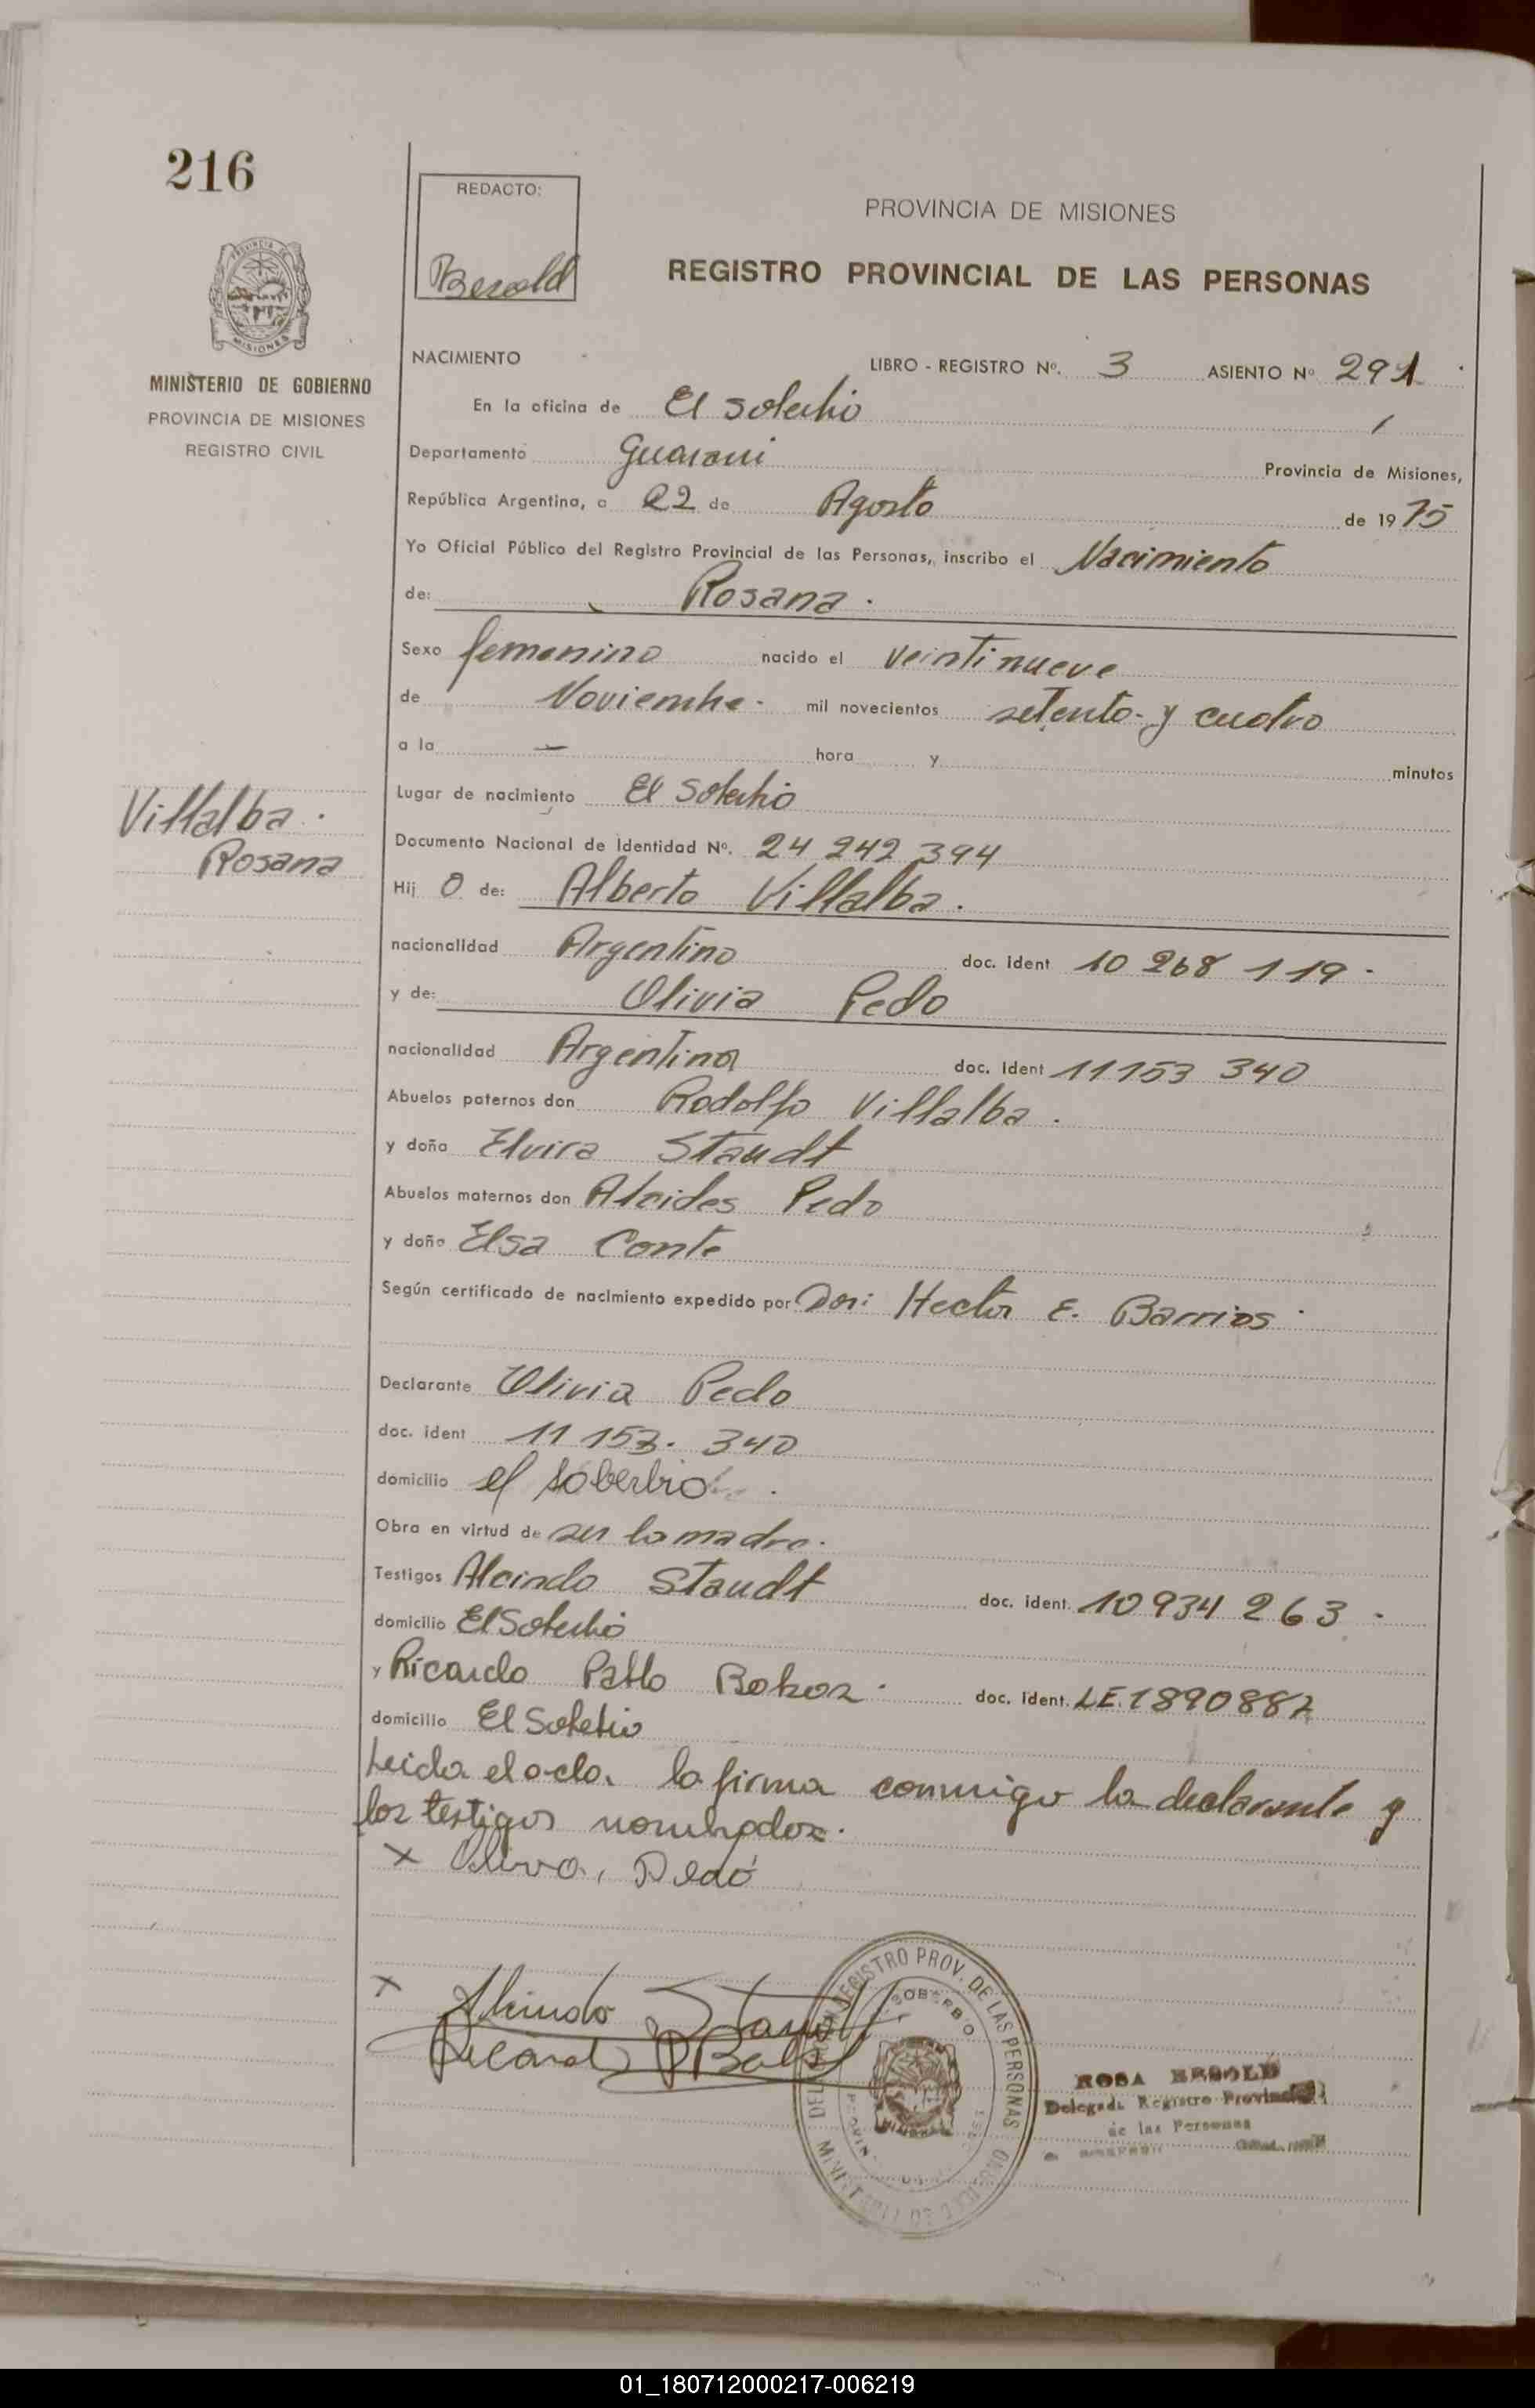 216
REDACTO:
Besold
PROVINCIA DE MISIONES
REGISTRO PROVINCIAL DE LAS PERSONAS
MISIONES
MINISTERIO DE GOBIERNO
PROVINCIA DE MISIONES
REGISTRO CIVIL
NACIMIENTO LIBRO - REGISTRO Nº. 3 ASIENTO Nº 291
En la oficina de El Soberbio
Departamento Guarani Provincia de Misiones,
República Argentina, a 22 de Agosto de 1975
Yo Oficial Público del Registro Provincial de las Personas, inscribo el Nacimiento
de: Rosana.
Sexo femenino nacido el veintinueve
de Noviembre. mil novecientos setenta y cuatro
a la — hora y minutos
Lugar de nacimiento El Soberbio
Villalba.
Rosana
Documento Nacional de Identidad Nº. 24 242 394
Hij O de: Alberto Villalba.
nacionalidad Argentino doc. ident 10 268 119.
y de: Olivia Pedo
nacionalidad Argentina doc. ident 11153 340
Abuelos paternos don Rodolfo Villalba.
y doña Elvira Staudt
Abuelos maternos don Alcides Pedo
y doña Elsa Conte
Según certificado de nacimiento expedido por Don: Hector E. Barrios.
Declarante Olivia Pedo
doc. ident 11 153. 340
domicilio el soberbio.
Obra en virtud de ser la madre.
Testigos Alcindo Staudt doc. ident. 10934 263.
domicilio El Soberbio
y Ricardo Pablo Bokor. doc. ident. LE.1890882
domicilio El Soberbio
Leida el acta. la firma conmigo la declarante y
los testigos nombrados.
x Oliva, Pedo
x Alcindo Staudt
Ricardo P Bokor
REGISTRO PROV. DE LAS PERSONAS
SOBERBIO
ROSA BESOLD
Delegada Registro Provincial
de las Personas
01_180712000217-006219